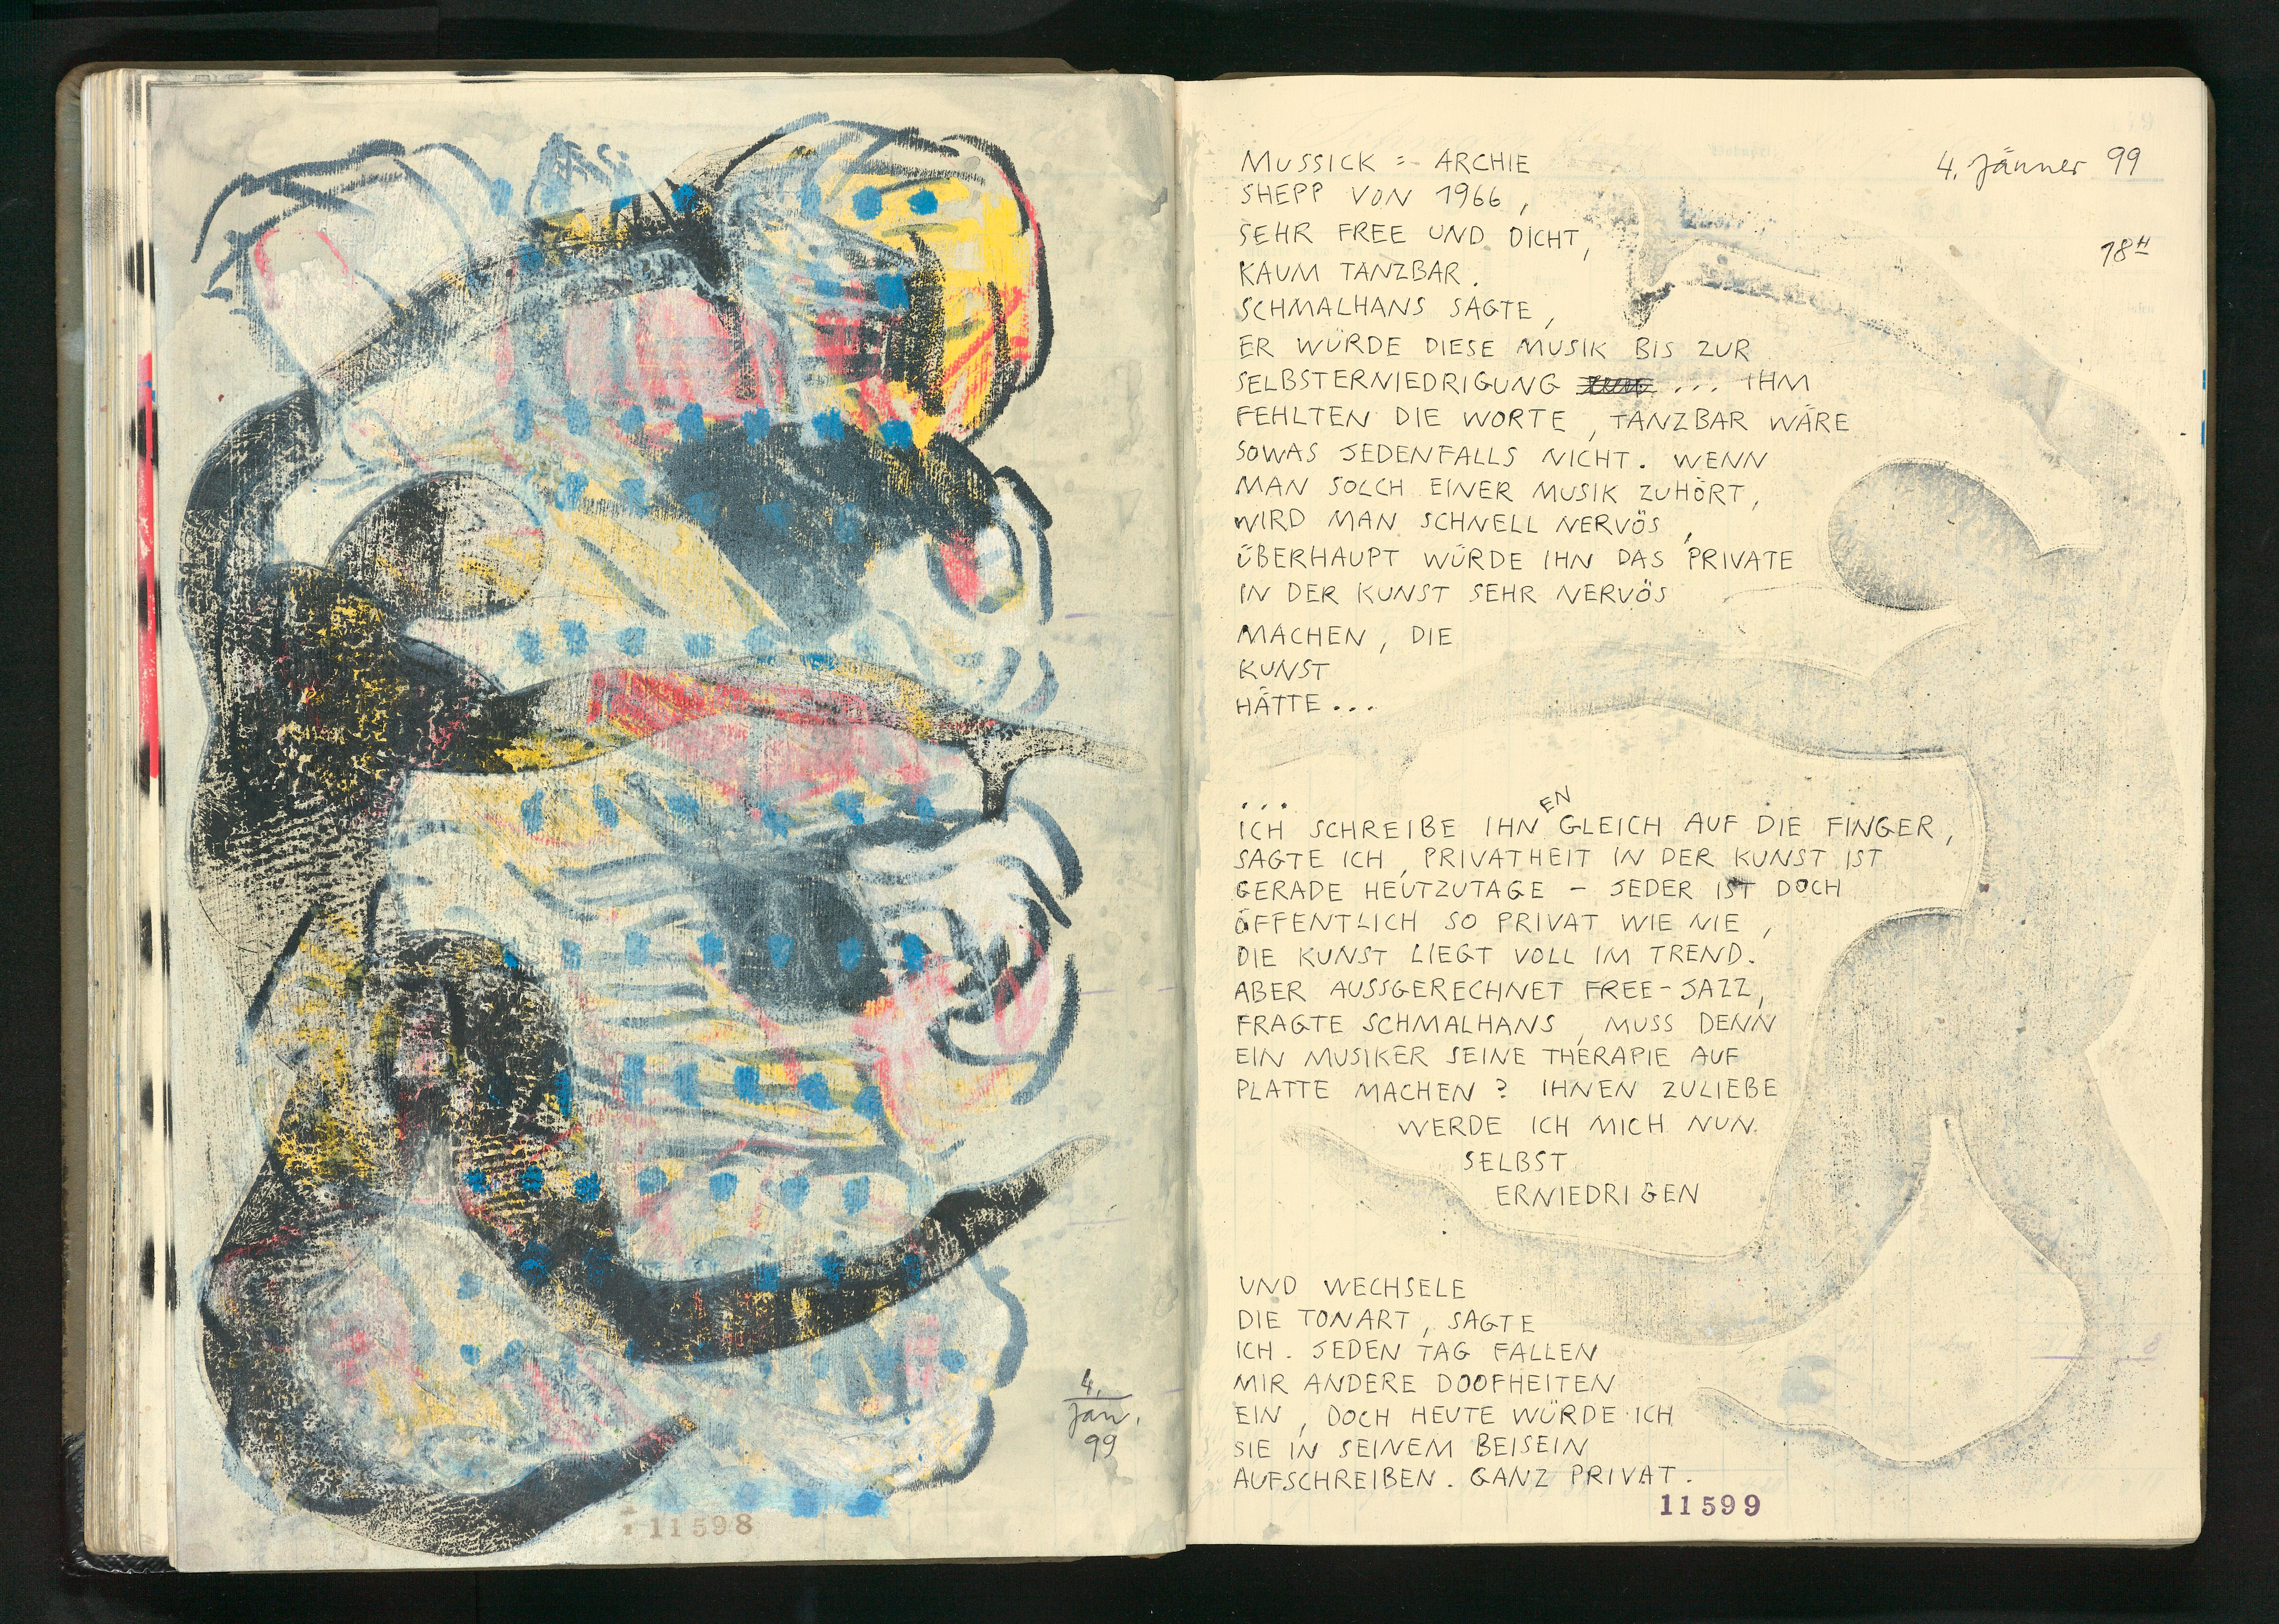 4.
Jan.
99
11598
4. Jänner 99
18H
MUSSICK = ARCHIE
SHEPP VON 1966,
SEHR FREE UND DICHT,
KAUM TANZBAR.
SCHMALHANS SAGTE,
ER WÜRDE DIESE MUSIK BIS ZUR
SELBSTERNIEDRIGUNG ... IHM
FEHLTEN DIE WORTE, TANZBAR WÄRE
SOWAS JEDENFALLS NICHT. WENN
MAN SOLCH EINER MUSIK ZUHÖRT,
WIRD MAN SCHNELL NERVÖS,
ÜBERHAUPT WÜRDE IHN DAS PRIVATE
IN DER KUNST SEHR NERVÖS
MACHEN, DIE
KUNST
HÄTTE...
...
ICH SCHREIBE IHNEN GLEICH AUF DIE FINGER,
SAGTE ICH, PRIVATHEIT IN DER KUNST IST
GERADE HEUTZUTAGE – JEDER IST DOCH
ÖFFENTLICH SO PRIVAT WIE NIE,
DIE KUNST LIEGT VOLL IM TREND.
ABER AUSSGERECHNET FREE-JAZZ,
FRAGTE SCHMALHANS, MUSS DENN
EIN MUSIKER SEINE THERAPIE AUF
PLATTE MACHEN? IHNEN ZULIEBE
WERDE ICH MICH NUN
SELBST
ERNIEDRIGEN
UND WECHSELE
DIE TONART, SAGTE
ICH. JEDEN TAG FALLEN
MIR ANDERE DOOFHEITEN
EIN, DOCH HEUTE WÜRDE ICH
SIE IN SEINEM BEISEIN
AUFSCHREIBEN. GANZ PRIVAT.
11599